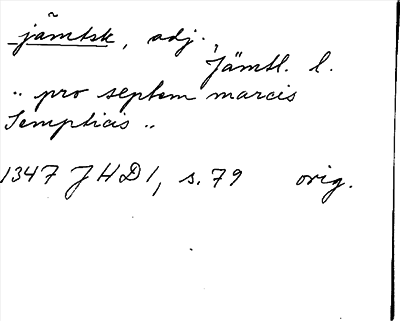 jämtsk, adj.
Jämtl. l.
.. pro septem marcis
Iempticis ..
1347 JHD 1, s. 79 orig.